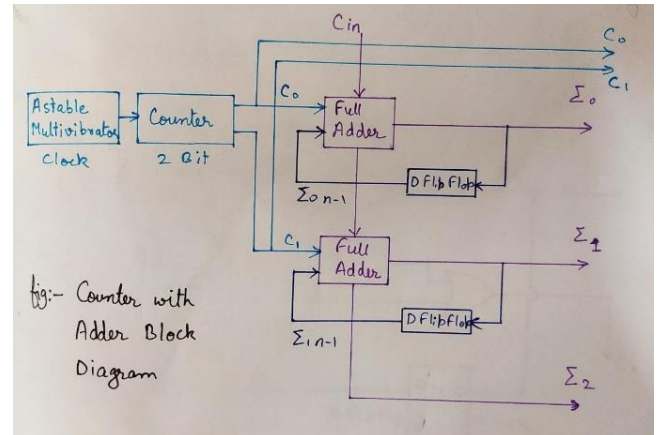 Cin
C₀
C₁
Σ₀
C₀
Astable
Multivibrator
Clock
Counter
2 Bit
Full
Adder
D Flip Flop
Σ₀ n-1
C₁
Full
Adder
Σ1
D Flip Flop
Σ₁ n-1
fig:- Counter with
Adder Block
Diagram
Σ₂